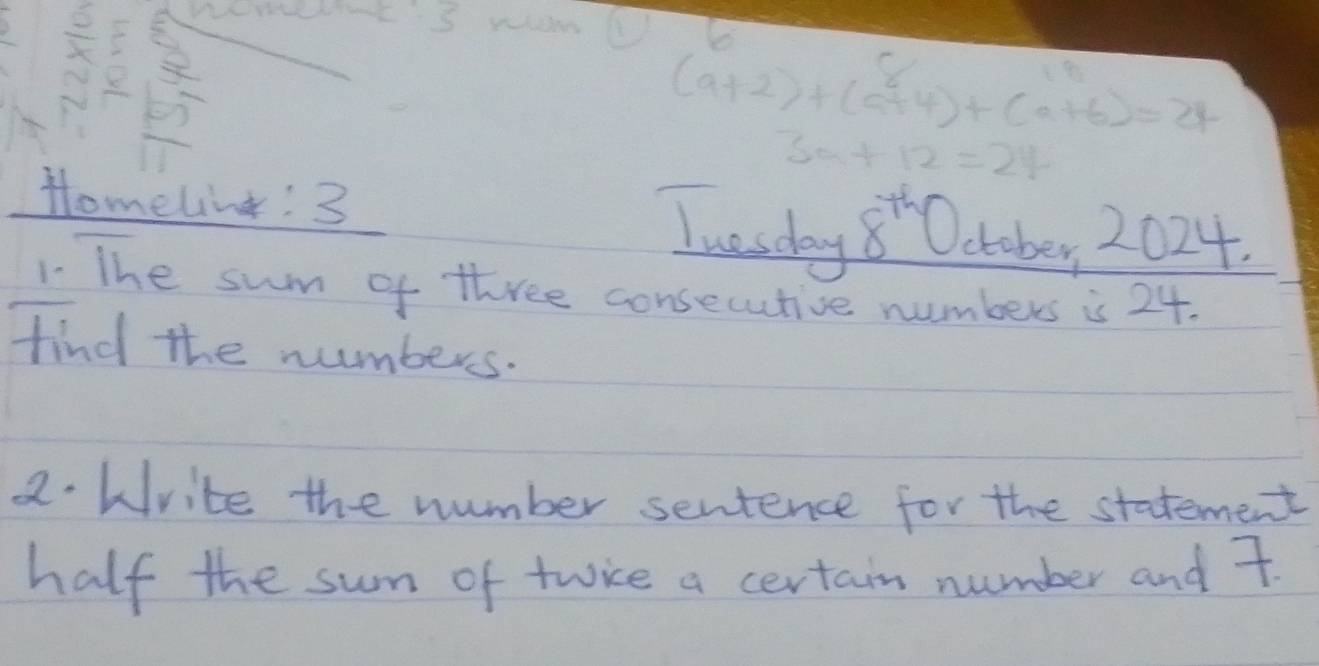 3 num ① 6
8 10
(a+2)+(a+4)+(a+6)=24
3a+12=24
Homelink: 3
Tuesday 8th October, 2024.
1. The sum of three consecutive numbers is 24.
Find the numbers.
2. Write the number sentence for the statement
half the sum of twice a certain number and 7.